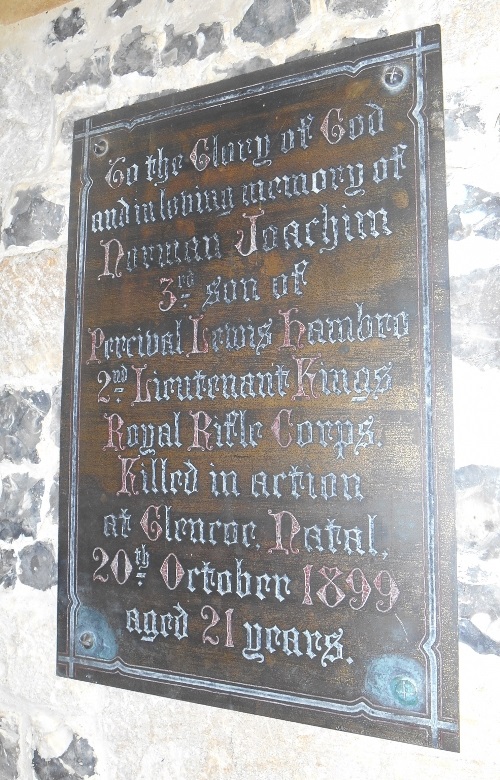 To the Glory of God
and in loving memory of
Norman Joachim
3rd son of
Percival Lewis Hambro
2nd Lieutenant Kings
Royal Rifle Corps.
Killed in action
at Glencoe, Natal,
20th October 1899
aged 21 years.